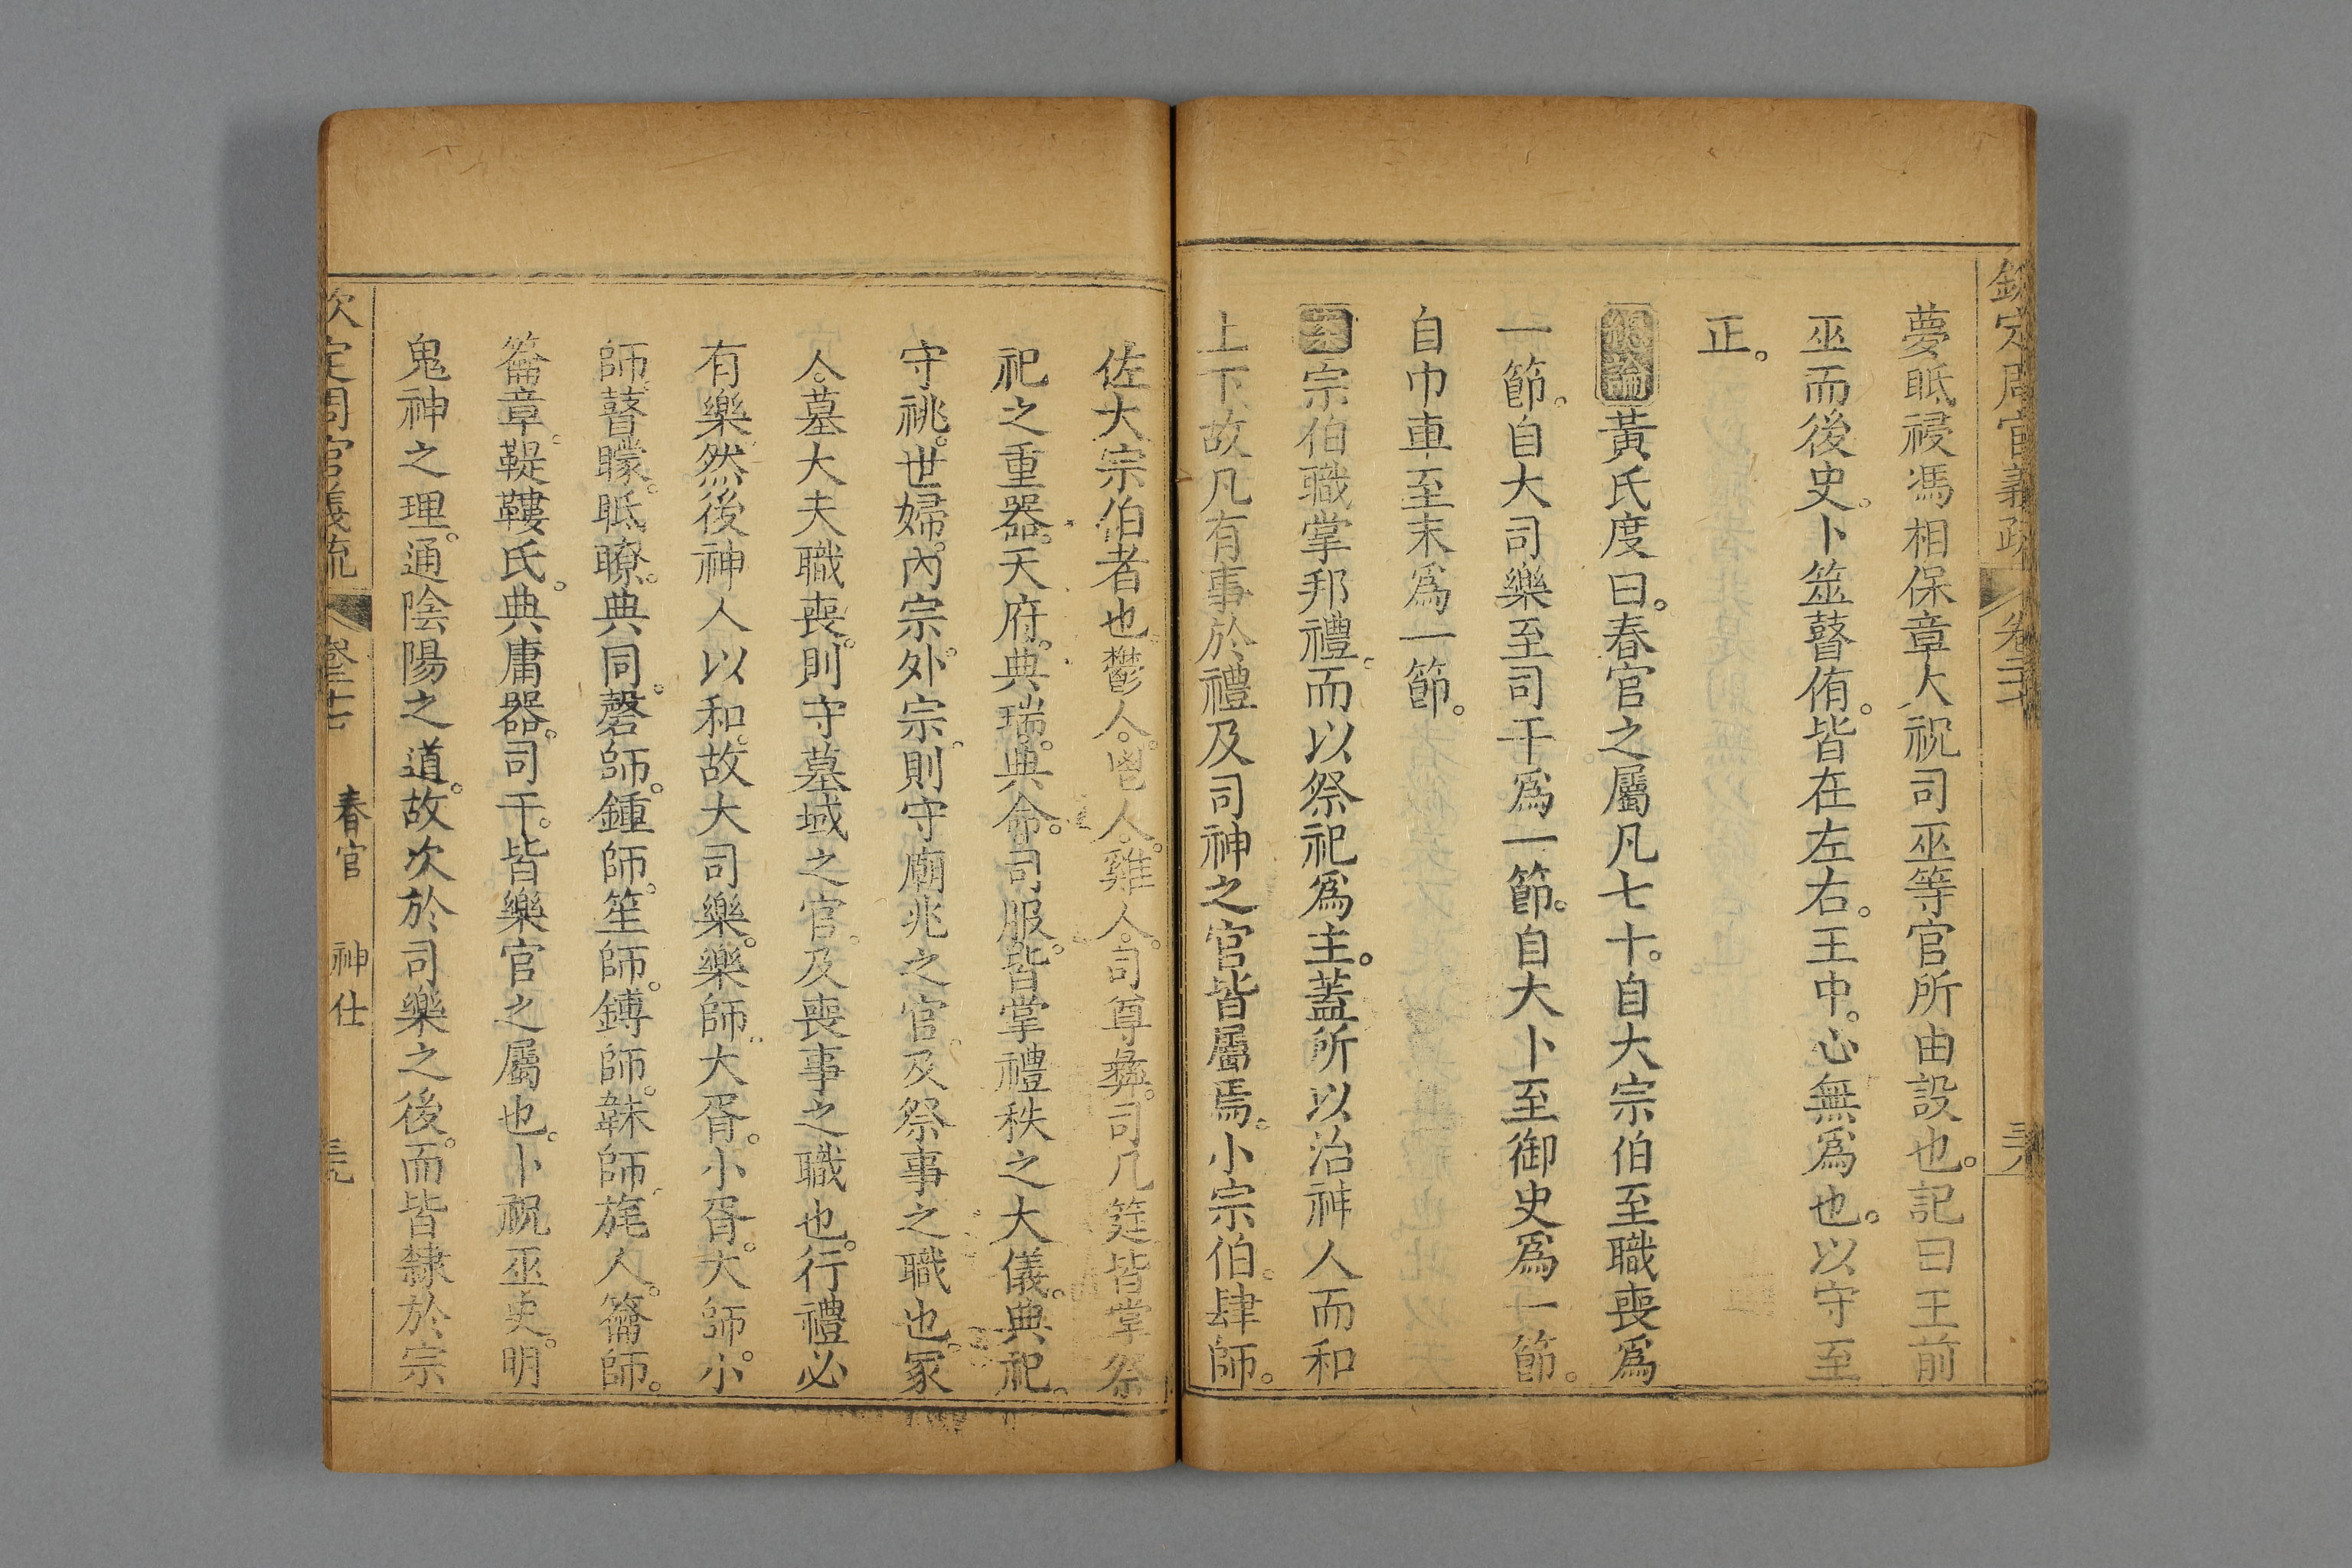 欽定周官義疏 卷二十 三八
夢眡祲馮相保章大祝司巫等官所由設也。記曰王前
巫而後史。卜筮瞽侑。皆在左右。王中。心無爲也。以守至
正。
總論黃氏度曰。春官之屬凡七十。自大宗伯至職喪爲
一節。自大司樂至司干爲一節。自大卜至御史爲一節。
自巾車至末爲一節。
宗伯職掌邦禮。而以祭祀爲主。蓋所以治神人而和
上下故凡有事於禮及司神之官皆屬焉。小宗伯。肆師。
佐大宗伯者也。鬱人。鬯人。雞人。司尊彝。司几筵皆掌祭
祀之重器。天府。典瑞。典命。司服。皆掌禮秩之大儀。典祀。
守祧。世婦。內宗。外宗。則守廟兆之官。及祭事之職也。冢
人。墓大夫職喪。則守墓域之官。及喪事之職也。行禮必
有樂然後神人以和。故大司樂。樂師。大胥。小胥。大師。小
師。瞽矇。眡瞭。典同。磬師。鍾師。笙師。鎛師。韎師。旄人。籥師。
籥章。鞮鞻氏。典庸器。司干。皆樂官之屬也。卜祝巫史。明
鬼神之理。通陰陽之道。故次於司樂之後。而皆隸於宗
欽定周官義疏 春官 神仕 三九